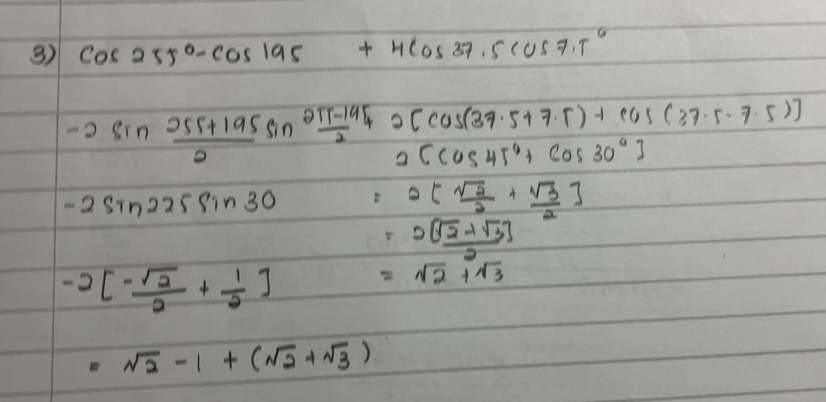 3) Cos 255° - cos 195 + 4cos 37.5 cos 7.5°
-2 sin (255+195)/2 sin (255-195)/2 + 2[cos(37.5+7.5) + cos(37.5-7.5)]
2[cos 45° + cos 30°]
-2 sin 225 sin 30 = 2[√2/2 + √3/2]
= 2[√2+√3]/2
-2[-√2/2 + 1/2] = √2 + √3
= √2 - 1 + (√2 + √3)